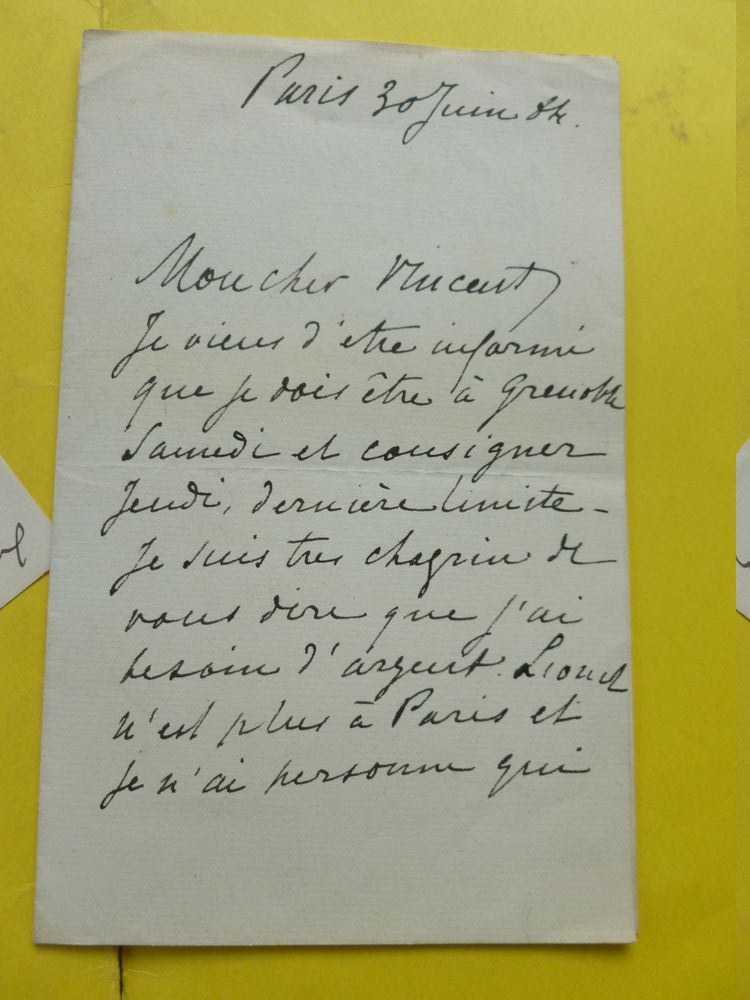 Paris 30 Juin 84.
Mon cher Vincent,
Je viens d'etre informé
que je dois être à Grenoble
Samedi et consigner
Jeudi, dernière limite -
Je suis tres chagrin de
vous dire que j'ai
besoin d'argent. Lionel
n'est plus à Paris et
je n'ai personne qui